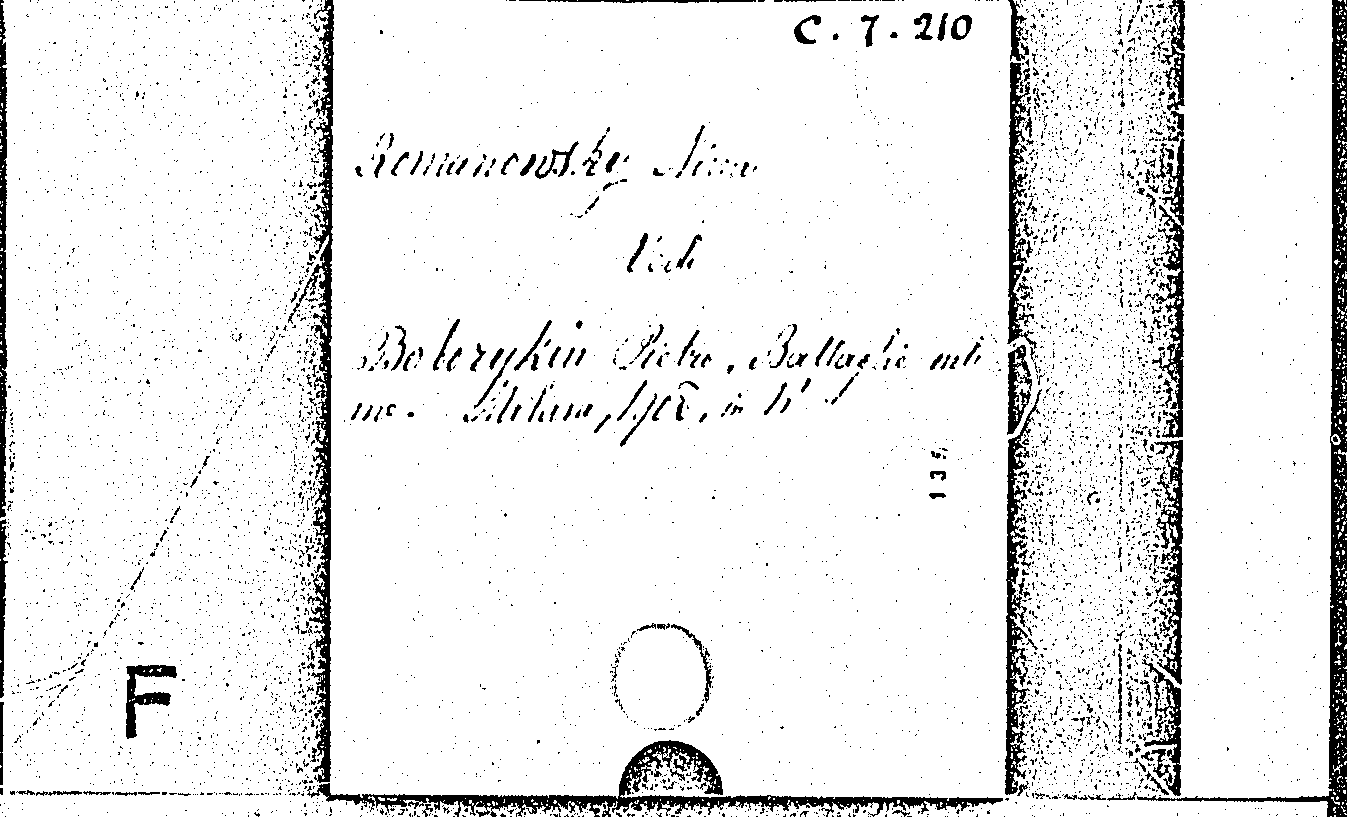 C. 7. 210
Romanowsky Nina
Vedi
Boborykin Pietro, Battaglie inti
me. Milano, in 4°
135
F